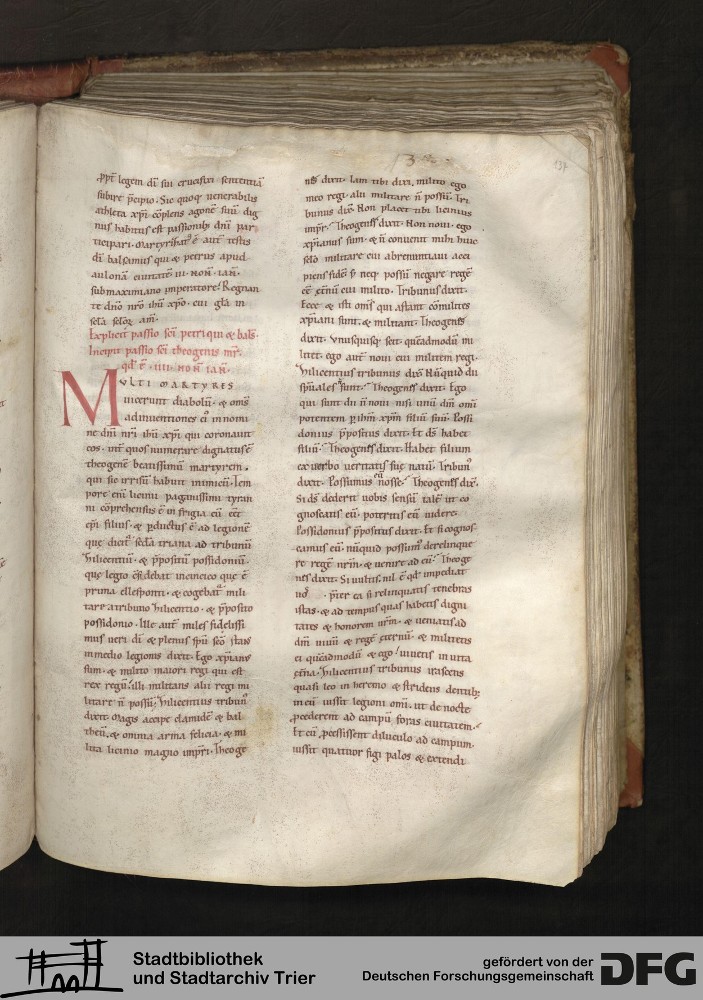 137
ppt legem di sui crucifixi sententiā
subire p̄cipio. Sic quoq; uenerabilis
athleta xp̄i cōplens agonē suū dig
nus habitus est passionib; dnī par
ticipari. Martyrizat᷒ ē autē testis
di balsamus qui & petrus apud
aulonā ciuitatē. iii. non. ian.
sub maximiano imperatore. Regnan
te dnō nrō ihū xpō. cui gła in
secła secłoꝝ am̄.
Explicit passio sc̄i petri qui & bals.
Incipit passio sc̄i theogenis mr̄.
qd̓ ē. iiii. non ian.
MVLTI MARTYRES
uicerunt diabolū. & om̄s
adinuentiones ei᷒ in nomi
ne dnī nrī ihū xp̄i qui coronauit
eos. int̓ quos numerare dignatus ē
theogenē beatissimū martyrem.
qui sic irrisū habuit inimicū. Tem
pore enī licinii paganissimi tyran
ni cōprehensus ē in frigia cū eēt
ep̄i filius. & pductus ē ad legionē
quę dicit᷒ secda triana ad tribunū
zilicentiū. & p̄positū possidoniū.
quę legio c̄sidebat in cizico que ē
prima ellesponti. & cogebat᷒ mili
tare a tribuno zilicentio. & p̄posito
possidonio. Ille autē miles fidelissi
mus ueri di & plenus spū sc̄o stans
in medio legionis dixit. Ego xp̄ianus
sum. & milito maiori regi qui est
rex regū. illi militans alii regi mi
litare n̄ possū. Zilicentius tribun᷒
dixit. Magis accipe clamidē & bal
theū. & omnia arma felicia. & mi
lita licinio magno imp̄ri. Theoge
nes dixit. Iam tibi dixi. milito ego
meo regi. alii militare n̄ possū. Tri
bunus dix̄. Non placet tibi licinius
imp̄r. Theogenes dixit. Non noui. ego
xp̄ianus sum. & n̄ conuenit mihi huic
sclo militare cui abrenuntiaui acci
piens fidē. s; neq; possū negare regē
ē ęt̓nū cui milito. Tribunus dixit.
Ecce & isti om̄s qui astant cōmilites
xp̄iani sunt. & militant. Theogenes
dixit. Vnusquisq; scit quēadmodū mi
litet. ego autē noui cui militem regi.
Zilicentius tribunus dix̄. Nūquid du
sp̄uales sunt. Theogenes dixit. Ego
qui sunt du n̄ noui. nisi unū dm̄ om̄i
potentem p̄rem ihm̄ xp̄m filiū suū. Possi
donius p̄positus dixit. Et ds̄ habet
filiū. Theogenes dixit. Habet filium
ex uerbo ueritatis suę natū. Tribun᷒
dixit. Possumus eū nosse. Theogenes dix̄.
Si ds̄ dederit uobis sensū talē ut co
gnoscatis eū. potertis eū uidere.
Possidonius p̄positus dixit. Et si cognos
camus eū. nūquid possum᷒ derelinque
re regē nrm̄. & uenire ad eū. Theoge
nes dixit. Si uultis. nil ē qd̓ impediat
uos. p̄ter ea si relinquatis tenebras
istas. & ad tempus quas habetis digni
tates & honorem urm̄. & ueniatis ad
dm̄ uiuū & regē ęternū. & militetis
ei quēadmodū & ego. uiuetis in uita
ęt̓na. Zilicentius tribunus irascens
quasi leo in heremo & stridens dentib;
in eū iussit legioni om̄i. ut de nocte
pcederent ad campū foras ciuitatem.
Et cū pcessissent diluculo ad campum.
iussit quattuor figi palos & extendi
Stadtbibliothek
und Stadtarchiv Trier
gefördert von der
Deutschen Forschungsgemeinschaft
DFG